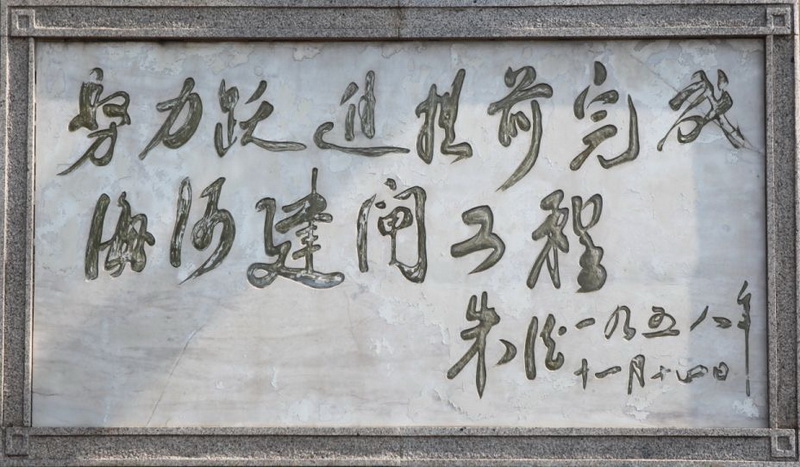 努力跃进提前完成
海河建闸工程
朱德一九五八年
十一月十四日